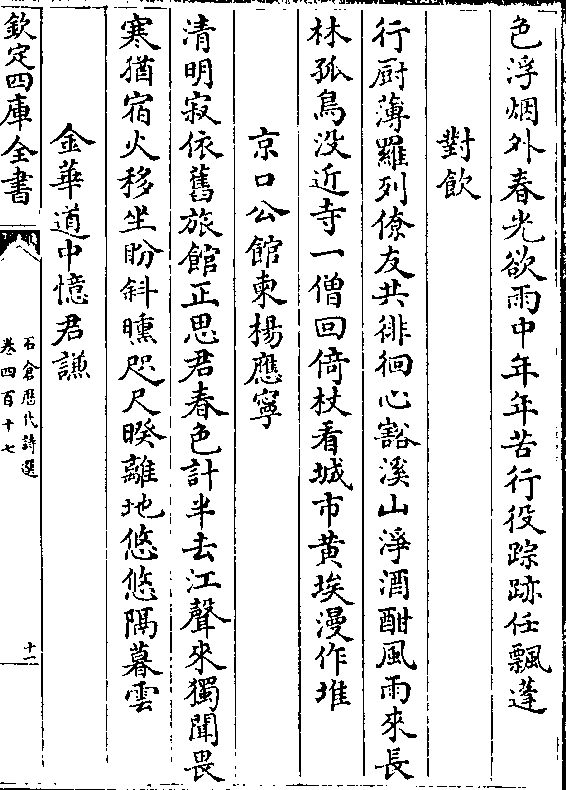 色浮烟外春光欲雨中年年苦行役踪跡任飄蓬
對飲
行厨薄羅列僚友共徘徊心豁溪山淨酒酣風雨來長
林孤鳥没近寺一僧回倚杖看城市黄埃漫作堆
京口公館柬楊應寧
清明寂依舊旅館正思君春色計半去江聲來獨聞畏
寒猶宿火移坐盼斜曛咫尺暌離地悠悠隔暮雲
金華道中憶君謙
欽定四庫全書
石倉歴代詩選
卷四百十七
十一